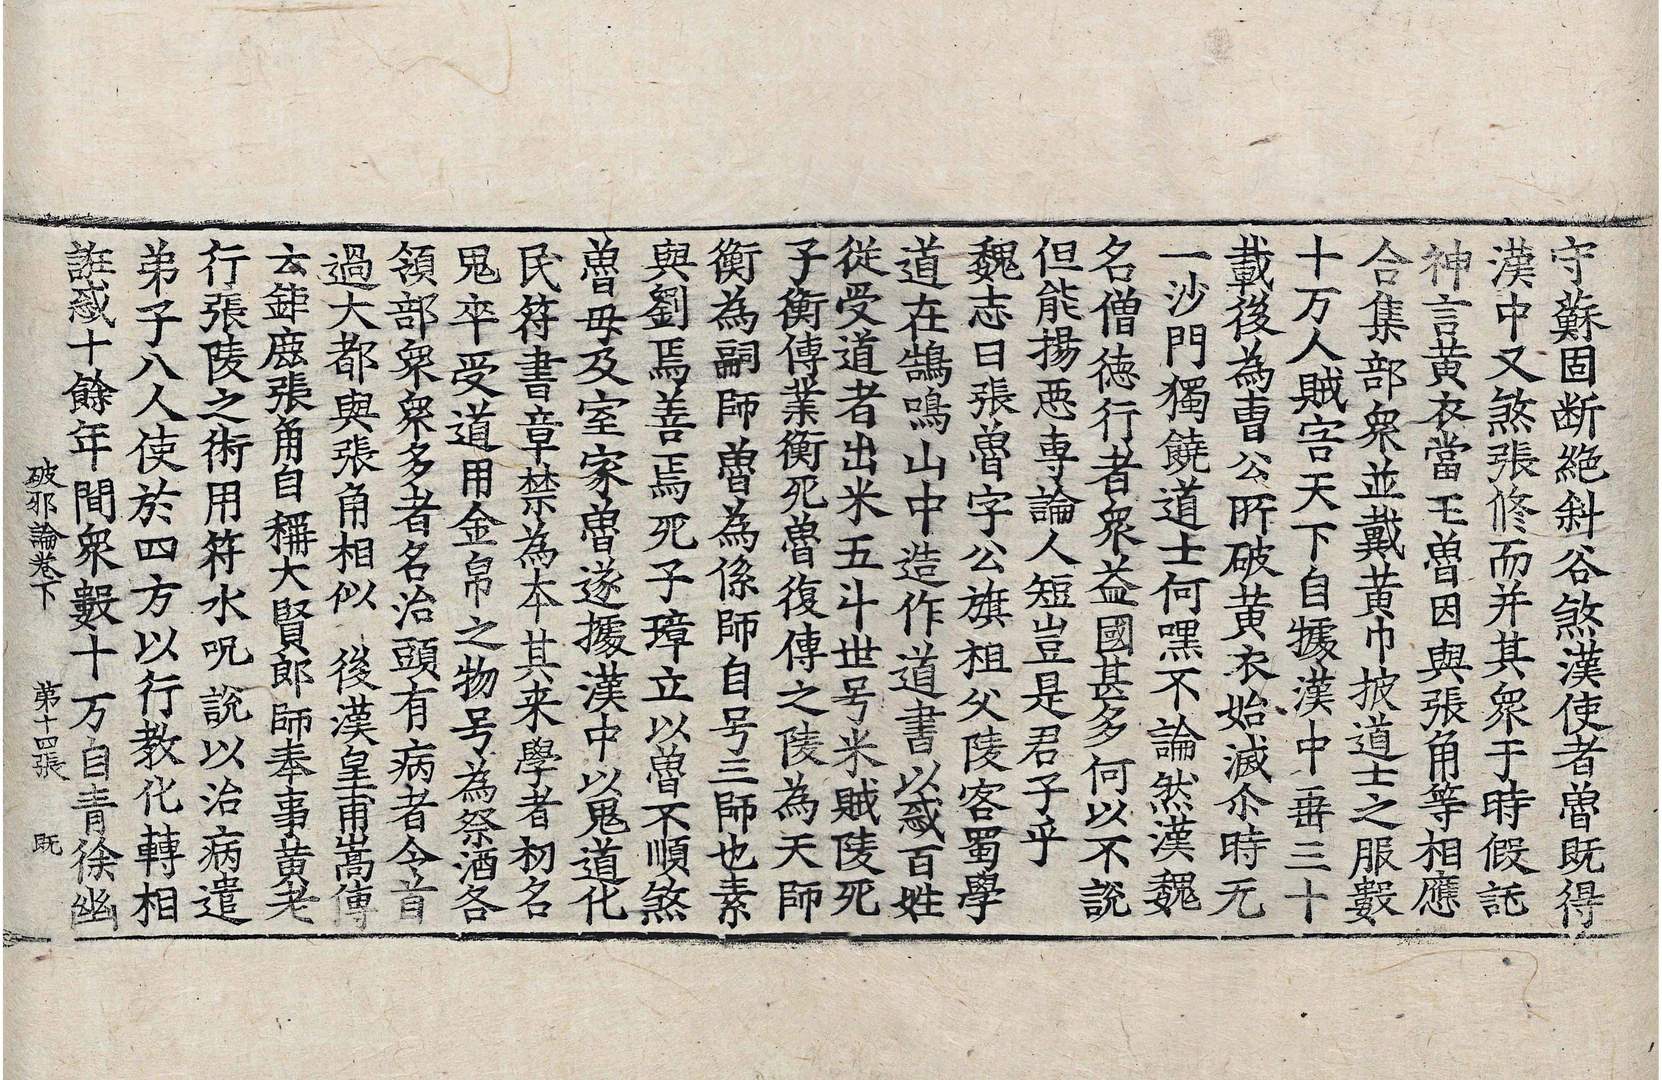 守蘇固断絶斜谷煞漢使者曽既得
漢中又煞張修而并其衆于時假託
神言黄衣當王曽因與張角等相應
合集部衆並戴黄巾披道士之服數
十万人賊害天下自㩀漢中垂三十
載後為曺公所破黄衣始滅尒時无
一沙門獨饒道士何嘿不論然漢魏
名僧徳行者衆益國甚多何以不說
但能揚惡専論人短豈是君子乎
魏志曰張曽字公旗祖父陵客蜀學
道在鵠鳴山中造作道書以惑百姓
従受道者出米五斗世号米賊陵死
子衡傳業衡死曽復傳之陵為天師
衡為嗣師曽為係師自号三師也素
與劉焉善焉死子璋立以曽不順煞
曽母及室家曽遂據漢中以鬼道化
民符書章禁為本其来學者初名
鬼卒受道用金帛之物号為祭酒各
領部衆衆多者名治頭有病者令首
過大都與張角相似 後漢皇甫嵩傳
云鉅鹿張角自稱大賢郎師奉事黄老
行張陵之術用符水呪說以治病遣
弟子八人使於四方以行教化轉相
誑惑十餘年間衆數十万自青徐幽
破邪論卷下 第十四張 既